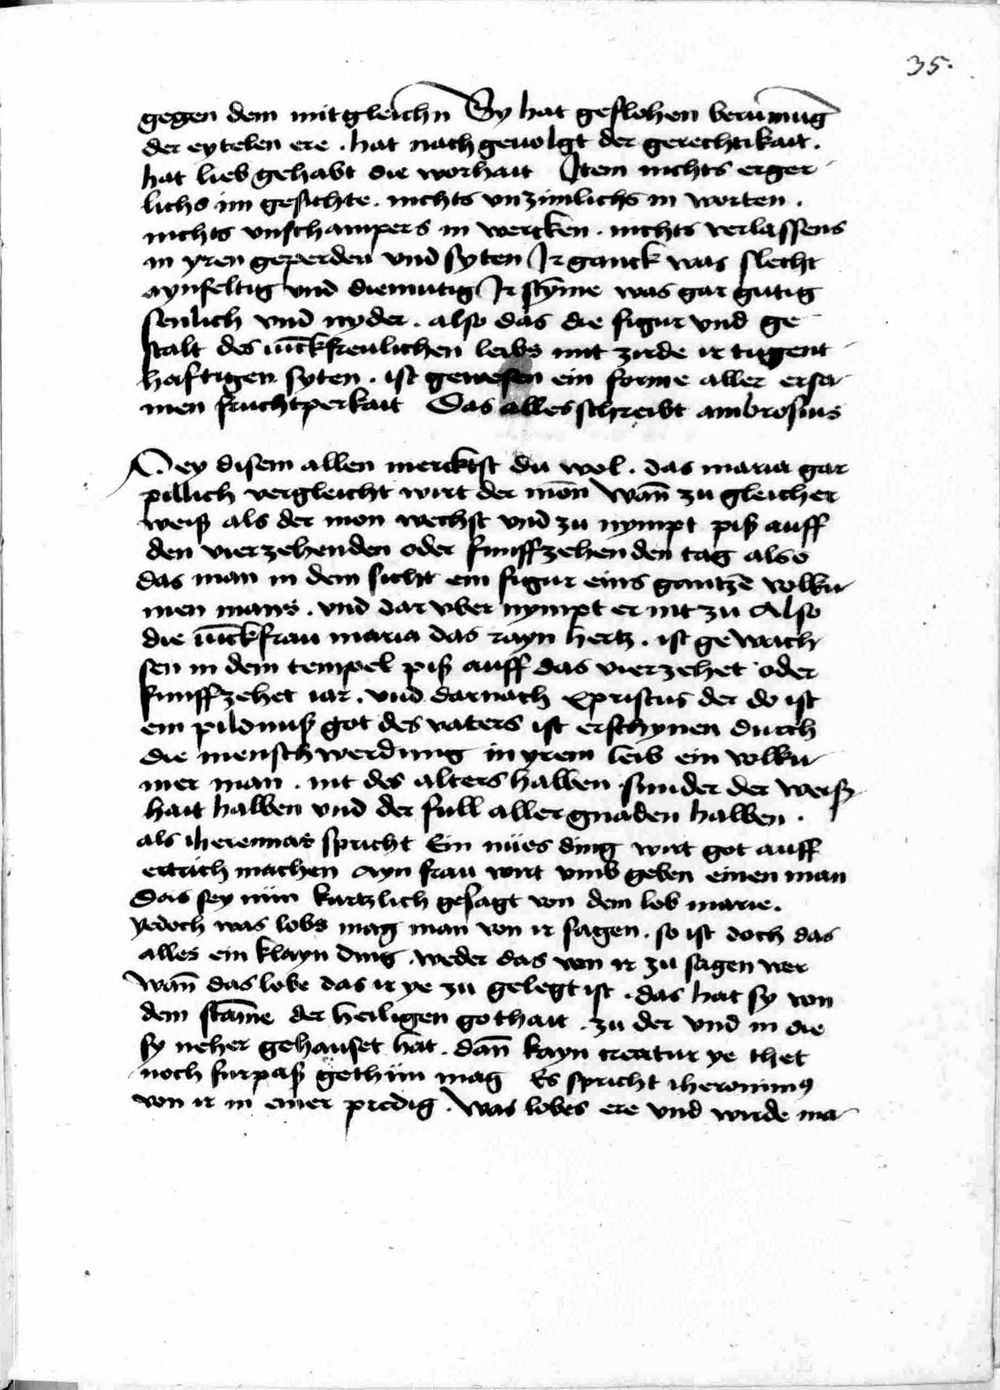 35.
gegen dem mitgleichn Sy hat geflohen berumug
der eytelen ere . hat nach geuolgt der gerechtikait .
hat lieb gehabt die worhait Jtem nichts erger
lichs im gesichte . nichts vnzimlichs in worten .
nichts vnschampers in wercken . nichts verlassens
in yren geperden vnd syten Jr ganck was slecht
aynfeltig vnd diemutig Jr stȳme was gar gutig
senlich vnd nyder . also das die figur vnd ge
stalt des iūckfreulichen leibs mit zirde ir tugent
haftigen syten . ist gewesen ein forme aller ersa
men fruchtperkait Das alles schreibt ambrosius
Pey disem allen mercktst du wol . das maria gar
pillich vergleicht wirt der mōn Wan̄ zu gleicher
weiß als der mon wechst vnd zu nympt piß auff
den vierzehenden oder funffzehenden tag also
das man in dem sicht ein figur eins gantzē volku
men mans . vnd dar vber nympt er nit zu Also
die iūckfrau maria das rayn hertz . ist gewach
sen in dem tempel piß auff das vierzehet oder
funffzehet iar . vnd darnach xpristus der do ist
ein pildnuß got des vaters ist erschynen durch
die menschwerdung in yrem leib ein volku
mer man . nit des alters halben sunder der weiß
hait halben vnd der full aller gnaden halben .
als iheremias spricht Ein nües ding wirt got auff
ertrich machen Ayn frau wirt vmb geben einen man
Das sey nün kurtzlich gesagt von dem lob marie .
yedoch was lobs mag man von ir sagen . so ist doch das
alles ein klayn ding . weder das von ir zu sagen wer
Wan̄ das lobe das ir ye zu gelegt ist . das hat sy von
dem stām̄e der heiligen gothait . zu der vnd in die
sy neher gehauset hat . dan̄ kayn creatur ye thet
noch furpaß gethün mag Es spricht iheronimꝰ
von ir in einer predig . Was lobes ere vnd wirde ma